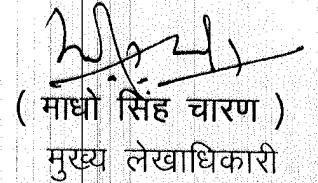 ( माधो सिंह चारण )
मुख्य लेखाधिकारी